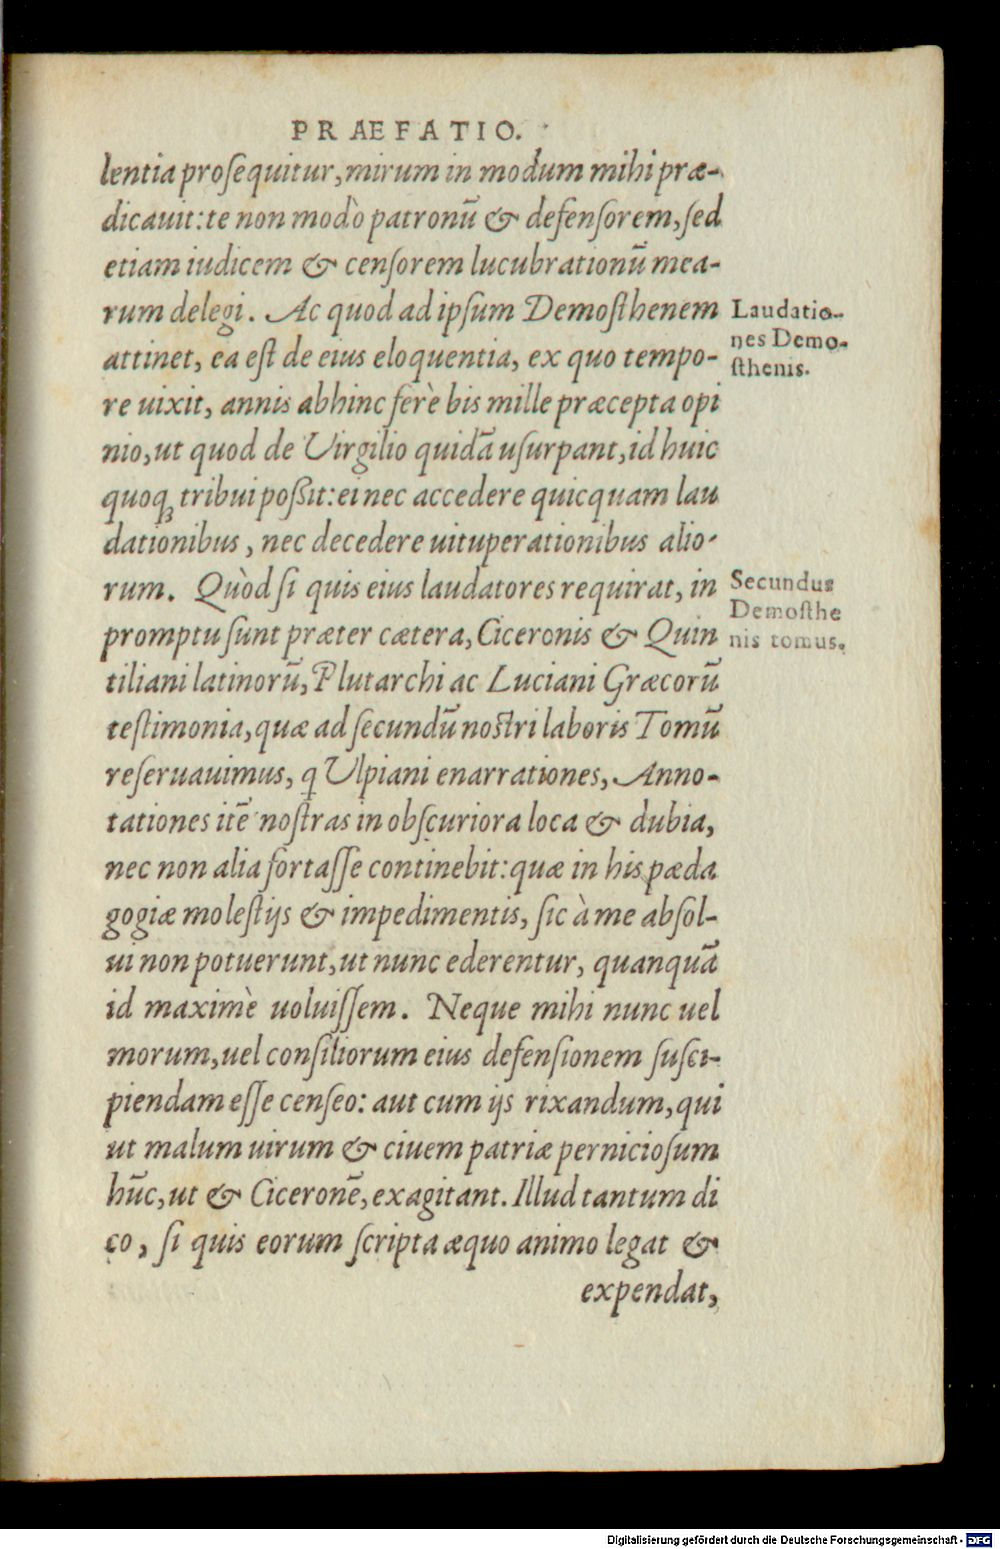 PRAEFATIO.
lentia proſequitur, mirum in modum mihi præ-
dicauit: te non modò patronū & defenſorem, ſed
etiam iudicem & cenſorem lucubrationū mea-
rum delegi. Ac quod ad ipſum Demoſthenem
attinet, ea eſt de eius eloquentia, ex quo tempo-
re uixit, annis abhinc ferè bis mille præcepta opi
nio, ut quod de Virgilio quidā uſurpant, id huic
quoqꝫ tribui poßit: ei nec accedere quicquam lau
dationibus, nec decedere uituperationibus alio-
rum. Quòd ſi quis eius laudatores requirat, in
promptu ſunt præter cætera, Ciceronis & Quin
tiliani latinorū, Plutarchi ac Luciani Græcorū
teſtimonia, quæ ad ſecundū noſtri laboris Tomū
reſeruauimus, q Ulpiani enarrationes, Anno-
tationes itē noſtras in obſcuriora loca & dubia,
nec non alia fortaſſe continebit: quæ in his pæda
gogiæ moleſtijs & impedimentis, ſic à me abſol-
ui non potuerunt, ut nunc ederentur, quanquā
id maximè uoluiſſem. Neque mihi nunc uel
morum, uel conſiliorum eius defenſionem ſuſci-
piendam eſſe cenſeo: aut cum ijs rixandum, qui
ut malum uirum & ciuem patriæ pernicioſum
hūc, ut & Ciceronē, exagitant. Illud tantum di
co, ſi quis eorum ſcripta æquo animo legat &
expendat,
Laudatio-
nes Demo-
ſthenis.
Secundus
Demoſthe
nis tomus.
Digitalisierung gefördert durch die Deutsche Forschungsgemeinschaft - DFG